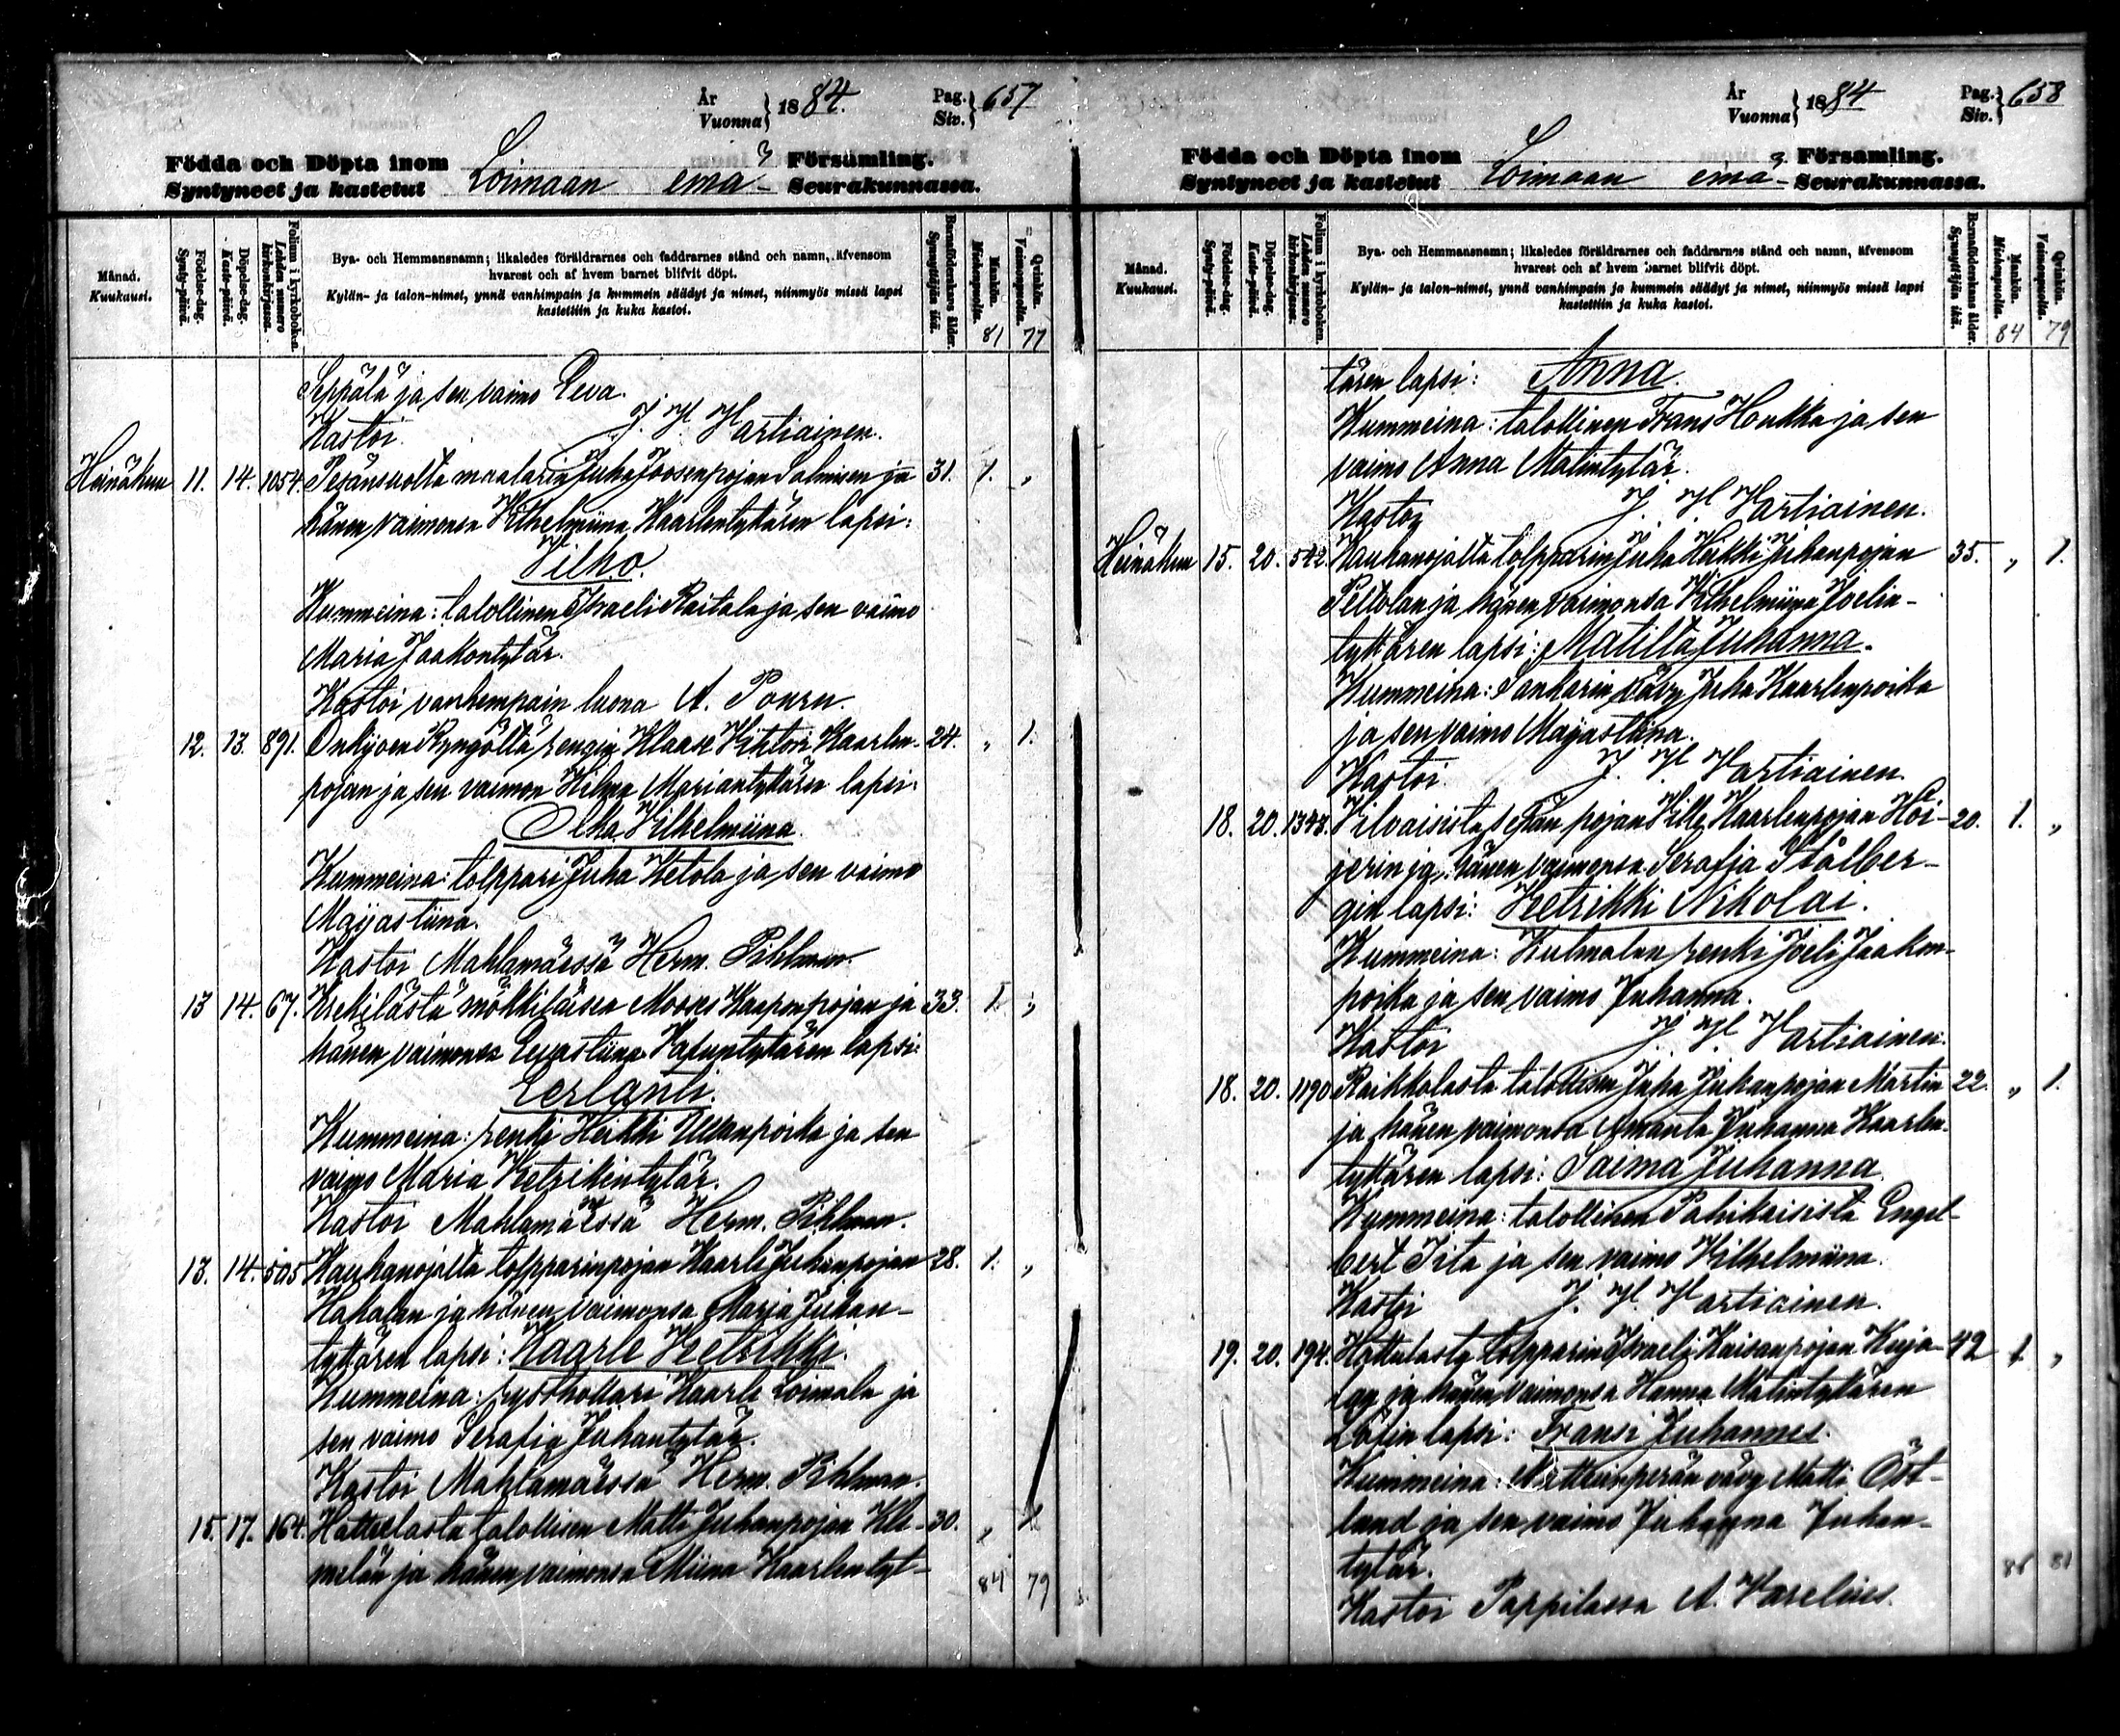 År Vuonna } 1884. Pag. Siv. } 657
Födda och Döpta inom Församling.
Syntyneet ja kastetut Loimaan emä- Seurakunnassa.
Månad. Kuukausi.
Födelse-dag. Synty-päivä.
Döpelse-dag. Kaste-päivä.
Folium i kyrkoboken. Lehden numero kirkonkirjassa.
Bya- och Hemmansnamn; likaledes föräldrarnes och faddrarnes stånd och namn, äfvensom
hvarest och af hvem barnet blifvit döpt.
Kylän- ja talon-nimet, ynnä vanhimpain ja kummein säädyt ja nimet, niinmyös missä lapsi
kastettiin ja kuka kastoi.
Barnföderskans ålder. Synnyttäjän ikä.
Mankön. Miehenpuolta. 81
Qvinkön. Vaimonpuolta. 77
Seppälä ja sen vaimo Eeva.
Kastoi J. H. Hartiainen.
Heinäkuu 11. 14. 1054. Pesänsuolta maalarin Juha Joosenpojan Salmisen ja 31. 1. „
hänen vaimonsa Vilhelmiina Kaarlentyttären lapsi:
Vilho.
Kummeina: talollinen Israeli Raitala ja sen vaimo
Maria Jaakontytär.
Kastoi vanhempain luona A. Pouru.
12. 13. 891. Onkijoen Ryngöltä rengin Klaase Vihtori Kaarlen- 24. „ 1.
pojan ja sen vaimon Hilma Mariantyttären lapsi.
Olha Vilhelmiina.
Kummeina: tolppari Juha Ketola ja sen vaimo
Maijastiina.
Kastoi Mahlamäessä Herm. Pihlman.
13 14. 67. Krekilästä mökkiläisen Mooses Kaapenpojan ja 33. 1. „
hänen vaimonsa Evastiina lapsi:
Eerlanti.
Kummeina: renki Heikki Ullanpoika ja sen
vaimo Maria Vretrikintytär.
Kastoi Mahlamäessä Herm. Pihlman.
13. 14. 505 Kauhanojalta tolpparinpojan Kaarle Juhanpojan 28. 1. „
Hakalan ja hänen vaimonsa Maria Juhan-
tyttären lapsi: Kaarle Vretrikki.
Kummeina: rysthollari Kaarle Loimala ja
sen vaimo Serafia Juhantytär.
Kastoi Mahlamäessä Herm. Pihlman.
15. 17. 164. Hattulasta talollisen Matti Juhanpojan Kle- 30. „ 1
melän ja hänen vaimonsa Miina Kaarlentyt-
84 79
År Vuonna } 1884 Pag. Siv. } 658
Födda och Döpta inom Församling.
Syntyneet ja kastetut Loimaan emä- Seurakunnassa.
Månad. Kuukausi.
Födelse-dag. Synty-päivä.
Döpelse-dag. Kaste-päivä.
Folium i kyrkoboken. Lehden numero kirkonkirjassa.
Bya- och Hemmansnamn; likaledes föräldrarnes och faddrarnes stånd och namn, äfvensom
hvarest och af hvem barnet blifvit döpt.
Kylän- ja talon-nimet, ynnä vanhimpain ja kummein säädyt ja nimet, niinmyös missä lapsi
kastettiin ja kuka kastoi.
Barnföderskans ålder. Synnyttäjän ikä.
Mankön. Miehenpuolta. 84
Qvinkön. Vaimonpuolta. 79
tären lapsi: Anna.
Kummeina: talollinen Frans Honkka ja sen
vaimo Anna Matintytär.
Kastoi J. H. Hartiainen.
Heinäkuu 15. 20. 542. Kauhanojalta tolpparin Juha Heikki Juhanpojan 35. „ 1.
Peltolan ja hänen vaimonsa Vilhelmiina Joelin-
tyttären lapsi: Matilta Juhanna.
Kummeina: Sankarin vävy Juha Kaarlenpoika
ja sen vaimo Maijastiina.
Kastoi J. H. Hartiainen.
18. 20. 1343. Vilvaisista sepän pojan Ville Kaarlenpojan Höi- 20. 1. „
jerin ja hänen vaimonsa Serafia Stålber-
gin lapsi: Vretrikki Nikolai.
Kummeina: Kulmalan renki Joeli Jaakon-
poika ja sen vaimo Juhanna.
Kastoi J. H. Hartiainen.
18. 20. 1190 Raikkolasta talollisen Juha Juhanpojan Martin 22. „ 1.
ja hänen vaimonsa Amanta Juhanna Kaarlen-
tyttären lapsi: Saima Juhanna.
Kummeina: talollinen Pahikaisista Engel-
bert Iita ja sen vaimo Vilhelmiina.
Kastoi J. H. Hartiainen.
19. 20. 194. Hattulasta tolpparin Israeli Kaisanpojan Kuja- 42 1 „
lan ja hänen vaimonsa Hanna Matintyttären
lapsi: Fransi Juhannes.
Kummeina: vävy Matti Öst-
land ja sen vaimo Juhanna Juhan-
tytär.
Kastoi Pappilassa A. Varelius.
85 81